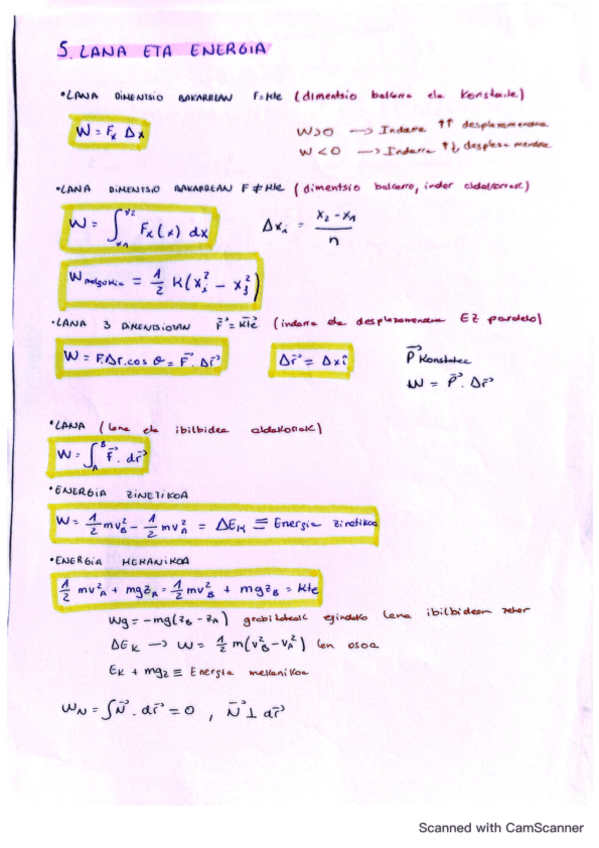 5. LANA ETA ENERGIA
• LANA DIMENTSIO BAKARREAN F=Kte (dimentsio bakarra eta konstante)
W = Fx Δx
W>0 → Indarra ↑↑ desplazamendua
W<0 → Indarra ↑↓ desplazamendua
• LANA DIMENTSIO BAKARREAN F≠Kte (dimentsio bakarra, indar aldakorrak)
W = ∫_{x1}^{x2} Fx(x) dx
Δxi = (x2 - x1)/n
W malgukia = 1/2 K(xi² - xf²)
• LANA 3 DIMENTSIOTAN F⃗=Kte (indarra eta desplazamendua EZ paraleloa)
W = F.Δr.cos θ = F⃗ . Δr⃗
Δr⃗ = Δx î
P⃗ Konstantea
W = P⃗ . Δr⃗
• LANA (lana eta ibilbidea aldakorrak)
W = ∫_A^B F⃗ . dr⃗
• ENERGIA ZINETIKOA
W = 1/2 mv_B² - 1/2 mv_A² = ΔE_K ≡ Energia zinetikoa
• ENERGIA MEKANIKOA
1/2 mv_A² + mgz_A = 1/2 mv_B² + mgz_B = kte
Wg = -mg(z_B - z_A) grabitateak egindako lana ibilbidean zehar
ΔE_K → W = 1/2 m(v_B² - v_A²) lan osoa
E_K + mgz ≡ Energia mekanikoa
W_N = ∫N⃗ . dr⃗ = 0 , N⃗ ⊥ dr⃗
Scanned with CamScanner